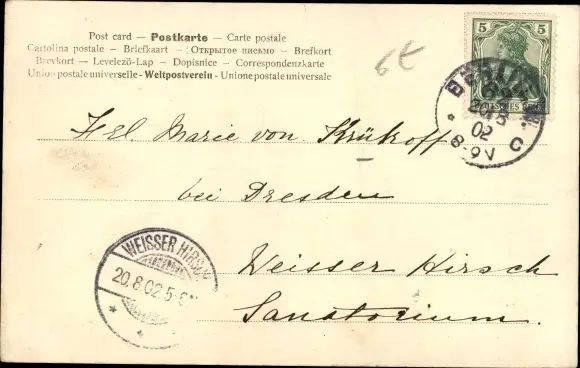 Post card — Postkarte — Carte postale
Cartolina postale — Briefkaart — Открытое письмо — Brefkort
Brevkort — Levelező-Lap — Dopisnice — Correspondenzkarte
Union postale universelle - Weltpostverein - Unione postale universale
6€
5 5
DEUTSCHES REICH
BERLIN
02
8-9V
C
Marie von Krükoff
bei Dresden
Weisser Hirsch
Sanatorium.
WEISSER HIRSCH
20.8.02.5-6N